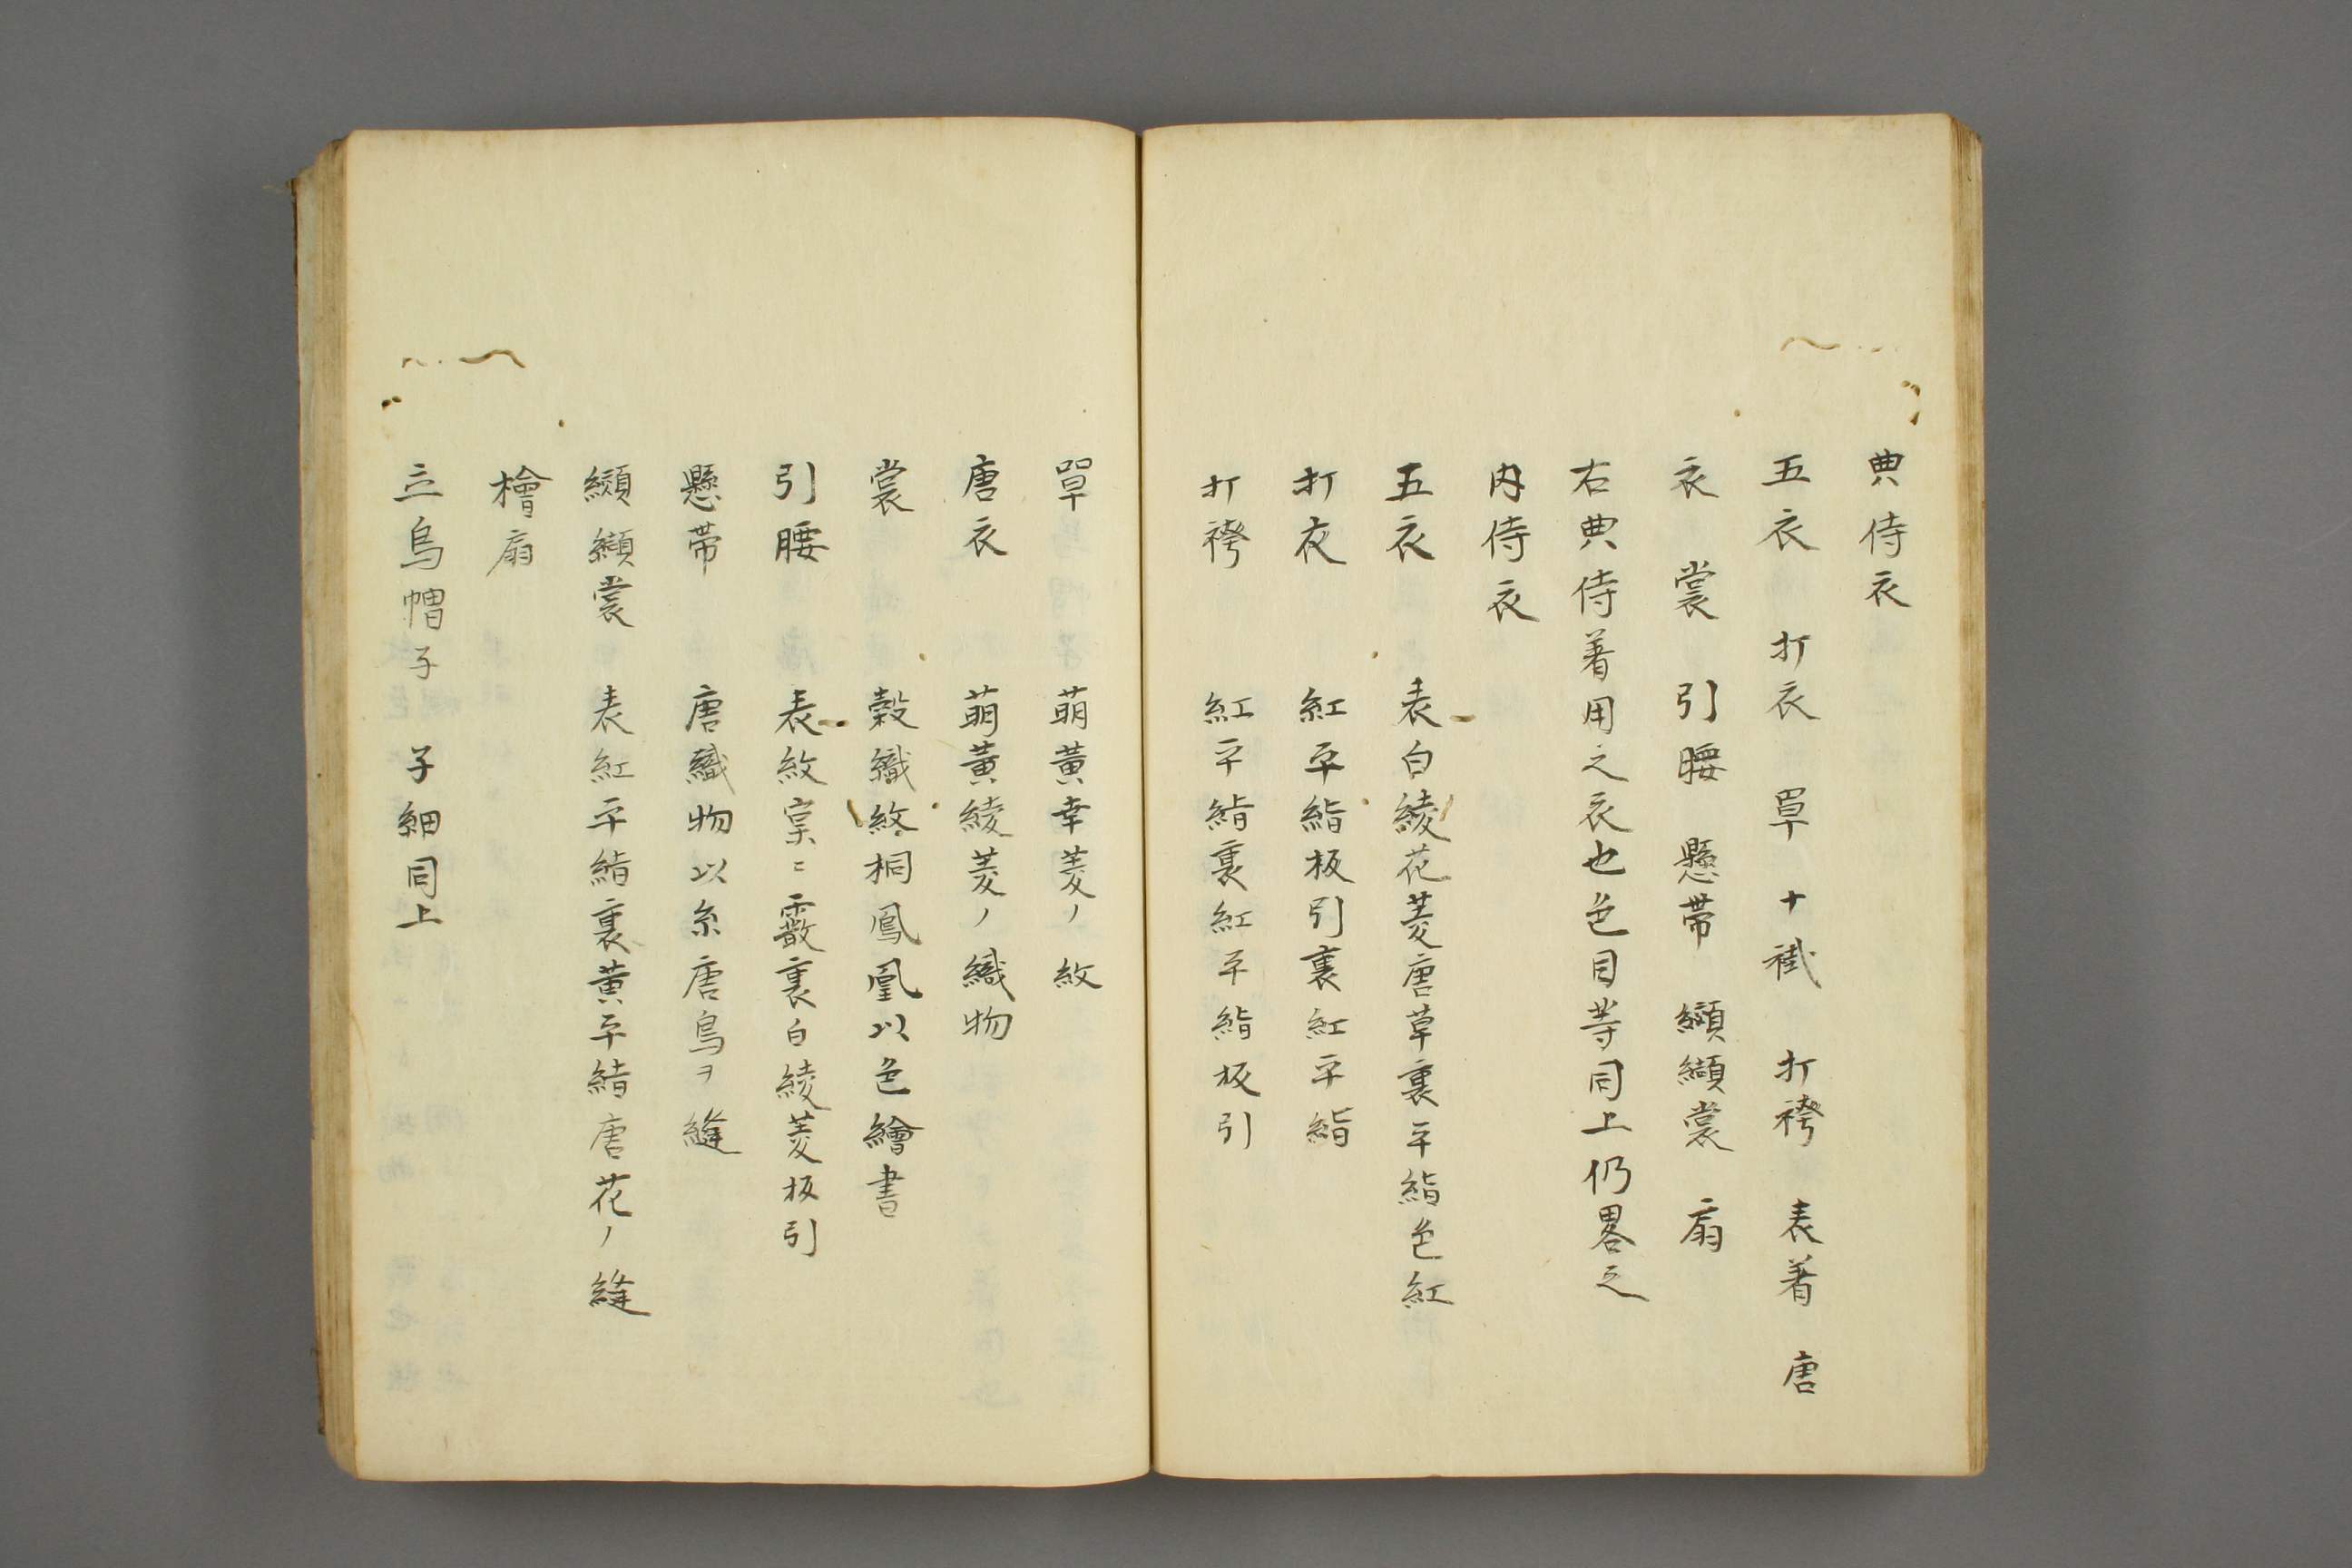 典侍衣
五衣 打衣 單 十襳 打袴 表着 唐
衣 裳 引腰 懸帯 纐纈裳 扇
右典侍着用之衣也色目等同上仍畧之
内侍衣
五衣 表白綾花菱唐草裏平絹色紅
打衣 紅平絹板引裏紅平絹
打袴 紅平絹裏紅平絹板引
單 萌黄幸菱ノ紋
唐衣 萌黄綾菱ノ織物
裳 縠織紋桐鳳凰以色繪書
引腰 表紋窠ニ霰裏白綾菱板引
懸帯 唐織物以糸唐鳥ヲ縫
纐纈裳 表紅平絹裏黄平絹唐花ノ縫
檜扇
立烏帽子 子細同上